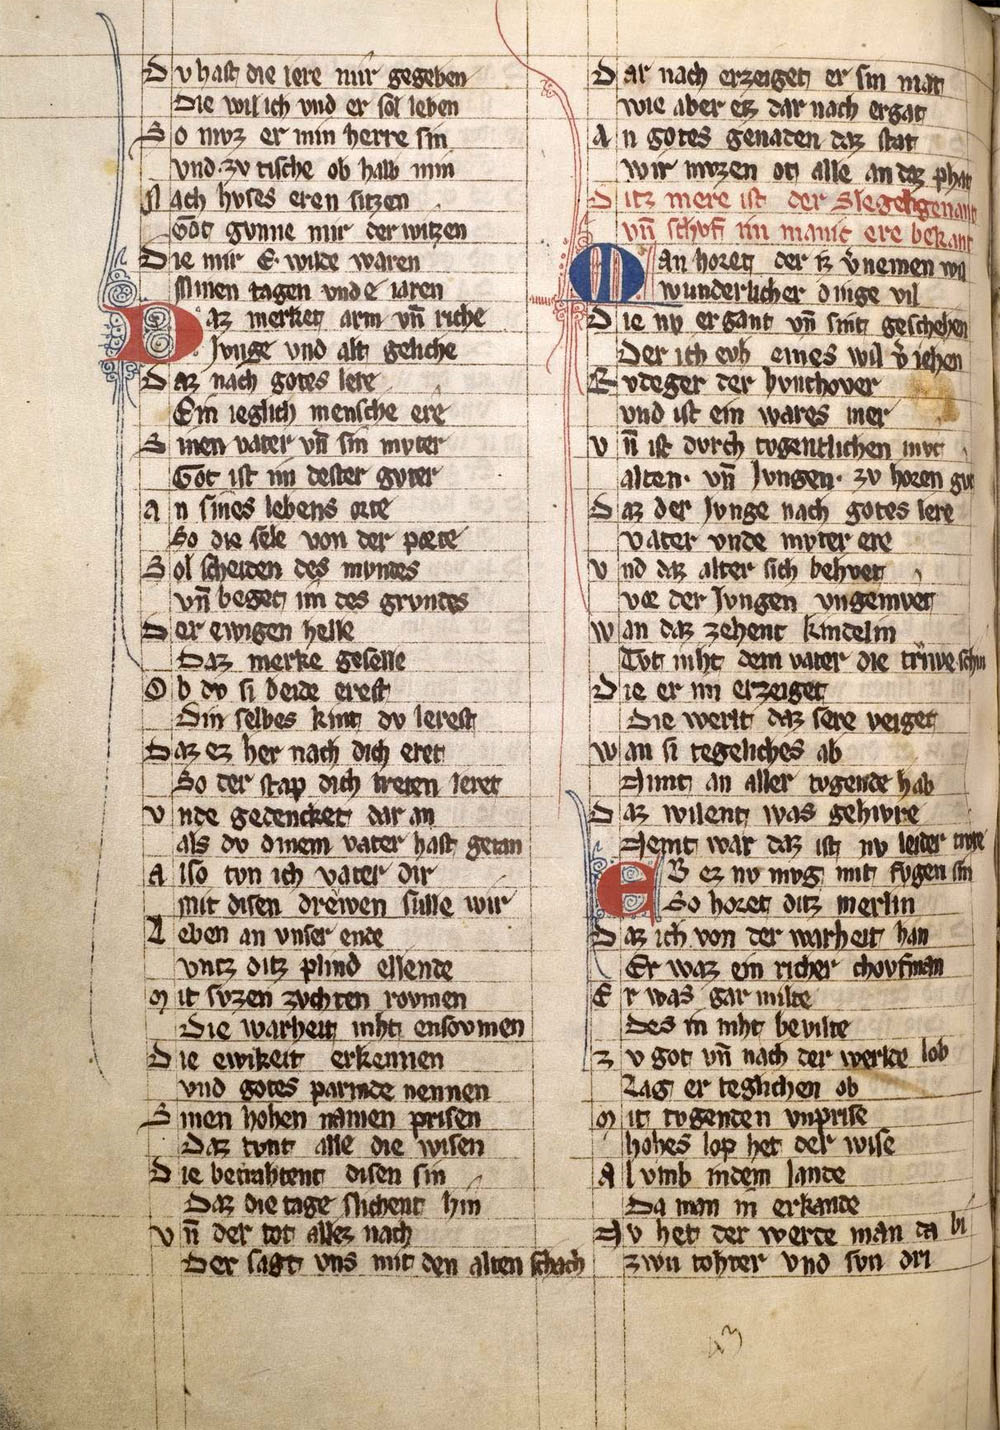 Dv hast die lere mir gegeben
Die wil ich vnd er sol leben
So mvz er min herre sin
vnd zv tische ob halb min
Nach hvses eren sitzen
Got gvnne mir der witzen
Die mir E wilde waren
Minen tagen vnde iaren
Daz merket arm vn̄ riche
Jvnge vnd alt geliche
Daz nach gotes lere
Ein ieglich mensche ere
Sinen vater vn̄ sin mvter
Got ist im dester gvter
an sines lebens orte
So die sele von der porte
Sol scheiden des mvndes
vn̄ beget im des grvndes
Der ewigen helle
Daz merke geselle
Ob dv si beide erest
Din selbes kint dv lerest
Daz ez her nach dich eret
So der stap dich treten leret
vnde gedencket dar an
als dv dinem vater hast getan
Also tvn ich vater dir
mit disen drewen sulle wir
Leben an vnser ende
vntz ditz plind ellende
Mit svzen zvchten rovmen
Die warheit niht ensovmen
Die ewikeit erkennen
vnd gotes parmde nennen
Sinen hohen namen prisen
Daz tvnt alle die wisen
Die betrahtent disen sin
Daz die tage slichent hin
vn̄ der tot allez nach
Der sagt vns mit den alten schach
Dar nach erzeiget er sin mat
wie aber ez dar nach ergat
An gotes genaden daz stat
wir mvzen ot alle an daz phat
Ditz mere ist der Slegel genant
vn̄ schvf im manic ere bekant
Man horet der iz v̄nemen wil
wunderlicher dinge vil
Die nv ergant vn̄ sint geschehen
Der ich evh eines wil v̄iehen
Rvdeger der hvnthover
vnd ist ein wares mer
vn̄ ist dvrch tvgentlichen mvt
alten vn̄ Jvngen zv horen gvt
Daz der Jvnge nach gotes lere
vater vnde mvter ere
vnd daz alter sich behvet
vor der Jvngen vngemvet
wan daz zehent kindelin
Tvt niht dem vater die triwe schin
Die er im erzeiget
Die werlt daz sere veiget
wan si tegeliches ab
Nimt an aller tvgende hab
Daz wilent was gehivre
Nemt war daz ist nv leider tivre
Eb ez nv mvg mit fvgen sin
So horet ditz merlin
Daz ich von der warheit han
Er waz ein richer chovfman
Er was gar milte
Des in niht bevilte
zv got vn̄ nach der werlde lob
Lag er teglichen ob
Mit tvgenden vnprise
hohes lop het der wise
Al vmb in dem lande
Da man in erkande
Nv het der werde man da bi
zwu tohter vnd svn dri
43